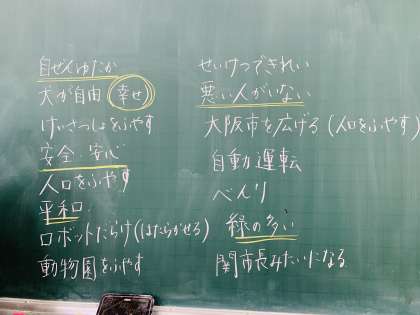 自ぜんゆたか
犬が自由 幸せ
けいさつしょをふやす
安全・安心
人口をふやす
平和
ロボットだらけ(はたらかせる)
動物園をふやす
せいけつできれい
悪い人がいない
大阪市を広げる(人口をふやす)
自動運転
べんり
緑の多い
関市長みたいになる